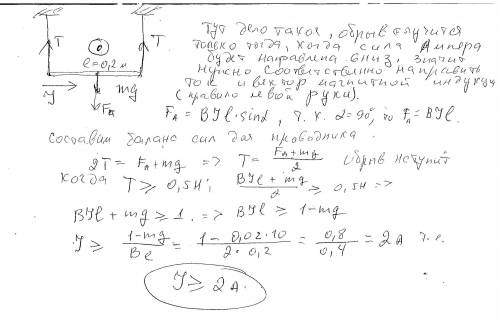 T
T
l=0,2 м
J
mg
Fа
Тут дело такое, обрыв случится
только тогда, когда сила Ампера
будет направлена вниз, значит
нужно соответственно направить
ток и вектор магнитной индукции
(правило левой руки).
Fа = BJl·sinα, т.к. α=90°, то Fа=BJl.
Составим баланс сил для проводника.
2T = Fа+mg => T= (Fа+mg)/2 обрыв наступит
когда T ≥ 0,5Н; (BJl+mg)/2 ≥ 0,5Н =>
BJl+mg ≥ 1 => BJl ≥ 1-mg
J ≥ (1-mg)/(Bl) = (1-0,02·10)/(2·0,2) = 0,8/0,4 = 2А т.е.
J ≥ 2А.